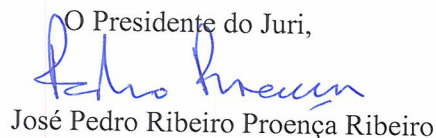 O Presidente do Juri,
Pedro Proença
José Pedro Ribeiro Proença Ribeiro